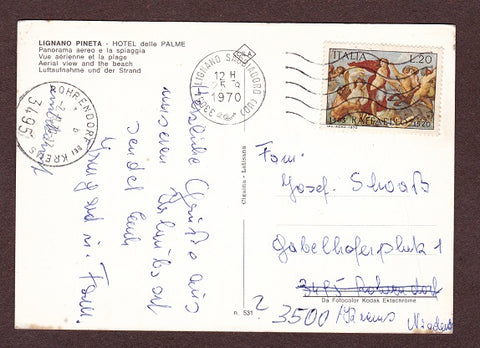 LIGNANO PINETA - HOTEL delle PALME
Panorama aereo e la spiaggia
Vue aérienne et la plage
Aerial view and the beach
Luftaufnahme und der Strand
LIGNANO SABBIADORO (UD)
12 H
1970
ITALIA
L.20
ROHRENDORF BEI KREMS
3495
Herzliche Grüße aus
unserem Urlaubsort
sendet Euch
Fam.
Fam.
Josef
Gabelhoferplatz 1
3495 Rohrendorf
3500 / Krems
n. 531
Da Fotocolor Kodak Ektachrome